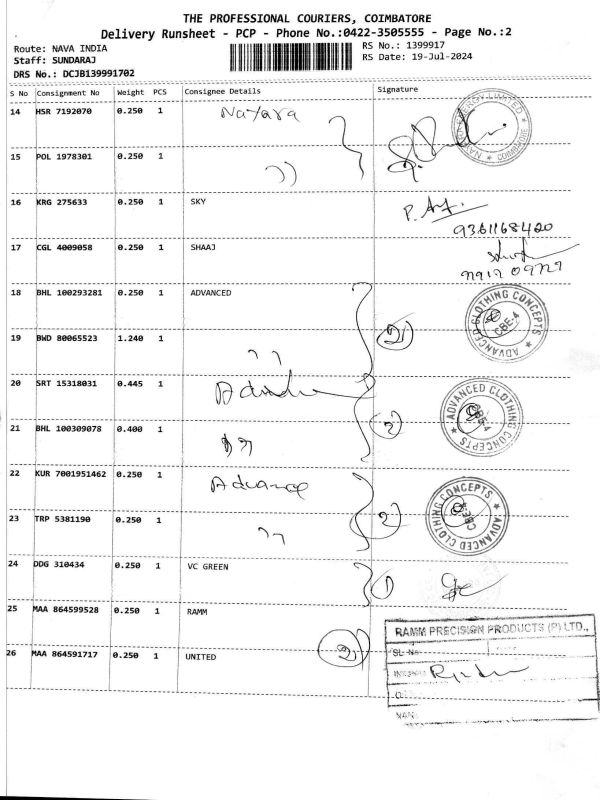 THE PROFESSIONAL COURIERS, COIMBATORE
Delivery Runsheet - PCP - Phone No.:0422-3505555 - Page No.:2
Route: NAVA INDIA
RS No.: 1399917
Staff: SUNDARAJ
RS Date: 19-Jul-2024
DRS No.: DCJB139991702
S No Consignment No Weight PCS Consignee Details Signature
14 HSR 7192070 0.250 1 Nayara
15 POL 1978301 0.250 1 ))
16 KRG 275633 0.250 1 SKY
9361168420
17 CGL 4009058 0.250 1 SHAAJ
18 BHL 100293281 0.250 1 ADVANCED
ADVANCED CLOTHING CONCEPTS CBE-4
19 BWD 80065523 1.240 1 2
20 SRT 15318031 0.445 1
ADVANCED CLOTHING CONCEPTS CBE-4
21 BHL 100309078 0.400 1 2
22 KUR 7001951462 0.250 1 Advance
ADVANCED CLOTHING CONCEPTS CBE-4
23 TRP 5381190 0.250 1 2
24 DDG 310434 0.250 1 VC GREEN 1
25 MAA 864599528 0.250 1 RAMM
RAMM PRECISION PRODUCTS (P) LTD.,
26 MAA 864591717 0.250 1 UNITED 2
SL No